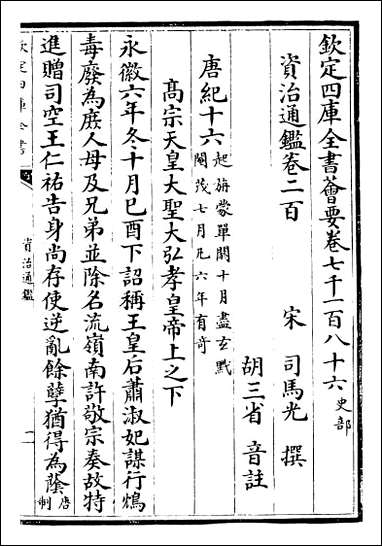 欽定四庫全書薈要卷七千一百八十六 史部
資治通鑑卷二百
宋 司馬光 撰
胡三省 音註
唐紀十六 起旃蒙單閼十月盡玄黓閹茂七月凡六年有奇
高宗天皇大聖大弘孝皇帝上之下
永徽六年冬十月己酉下詔稱王皇后蕭淑妃謀行鴆
毒廢為庶人母及兄弟並除名流嶺南許敬宗奏故特
進贈司空王仁祐告身尚存使逆亂餘孽猶得為蔭 唐制
欽定四庫全書
資治通鑑
一